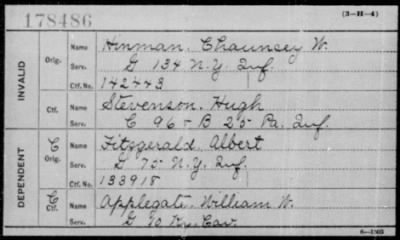 178486
(3-H-4)
INVALID
Orig.
Name
Hinman, Chauncey W.
Serv.
G 134 N.Y. Inf.
Ctf. No.
142443
Ctf.
Name
Stevenson, Hugh
Serv.
C 96 - B 25 Pa. Inf.
DEPENDENT
C
Orig.
Name
Fitzgerald, Albert
Serv.
G 75 N.Y. Inf.
Ctf. No.
133918
C
Ctf.
Name
Applegate, William W.
Serv.
G 10 Ky. Cav.